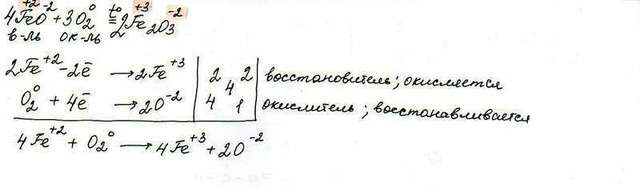 4Fe⁺²O⁻² + 3O₂⁰ t° = 2Fe₂⁺³O₃⁻²
в-ль ок-ль
2Fe⁺² - 2ē → 2Fe⁺³ | 2 | 2 | восстановитель; окисляется
4
O₂⁰ + 4ē → 2O⁻² | 4 | 1 | окислитель; восстанавливается
4Fe⁺² + O₂⁰ → 4Fe⁺³ + 2O⁻²